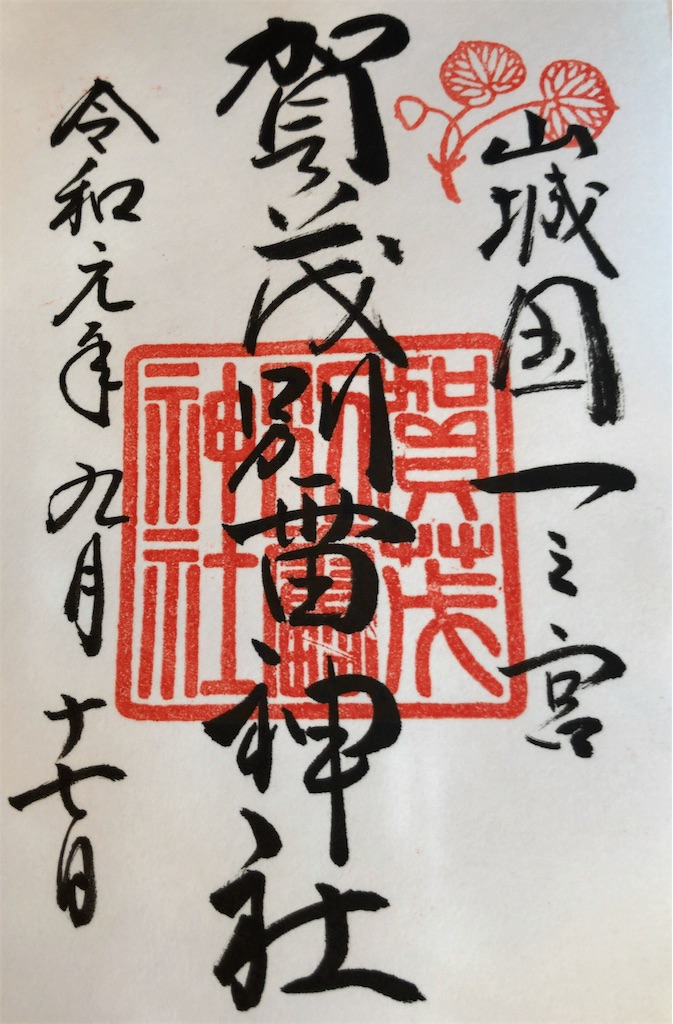 山城国一之宮
賀茂別雷神社
賀茂
別雷
神社
令和元年九月十七日